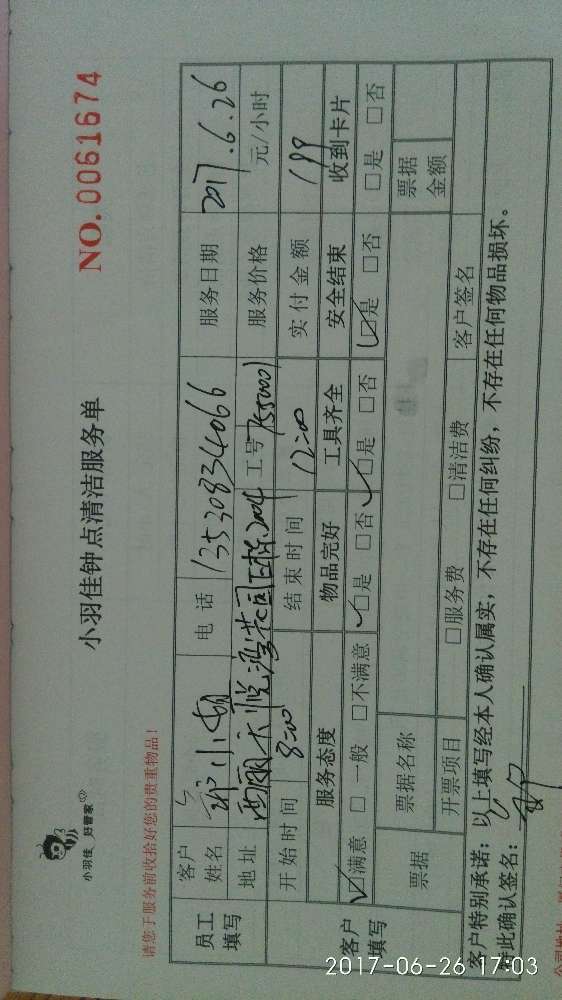 小羽佳 好管家
小羽佳钟点清洁服务单
NO.0061674
请您于服务前收拾好您的贵重物品!
员工填写
客户姓名 小
电话 13530834066
服务日期 2017.6.26
地址 西丽大 湾花园 2004
工号
服务价格 元/小时
客户填写
开始时间 8:00
结束时间 12:00
实付金额 199
服务态度 物品完好 工具齐全 安全结束 收到卡片
□满意 □一般 □不满意 □是 □否 □是 □否 □是 □否 □是 □否
票据 票据名称 票据金额
开票项目 □服务费 □清洁费 客户签名
客户特别承诺:以上填写经本人确认属实,不存在任何纠纷,不存在任何物品损坏。
特此确认签名:
2017-06-26 17:03